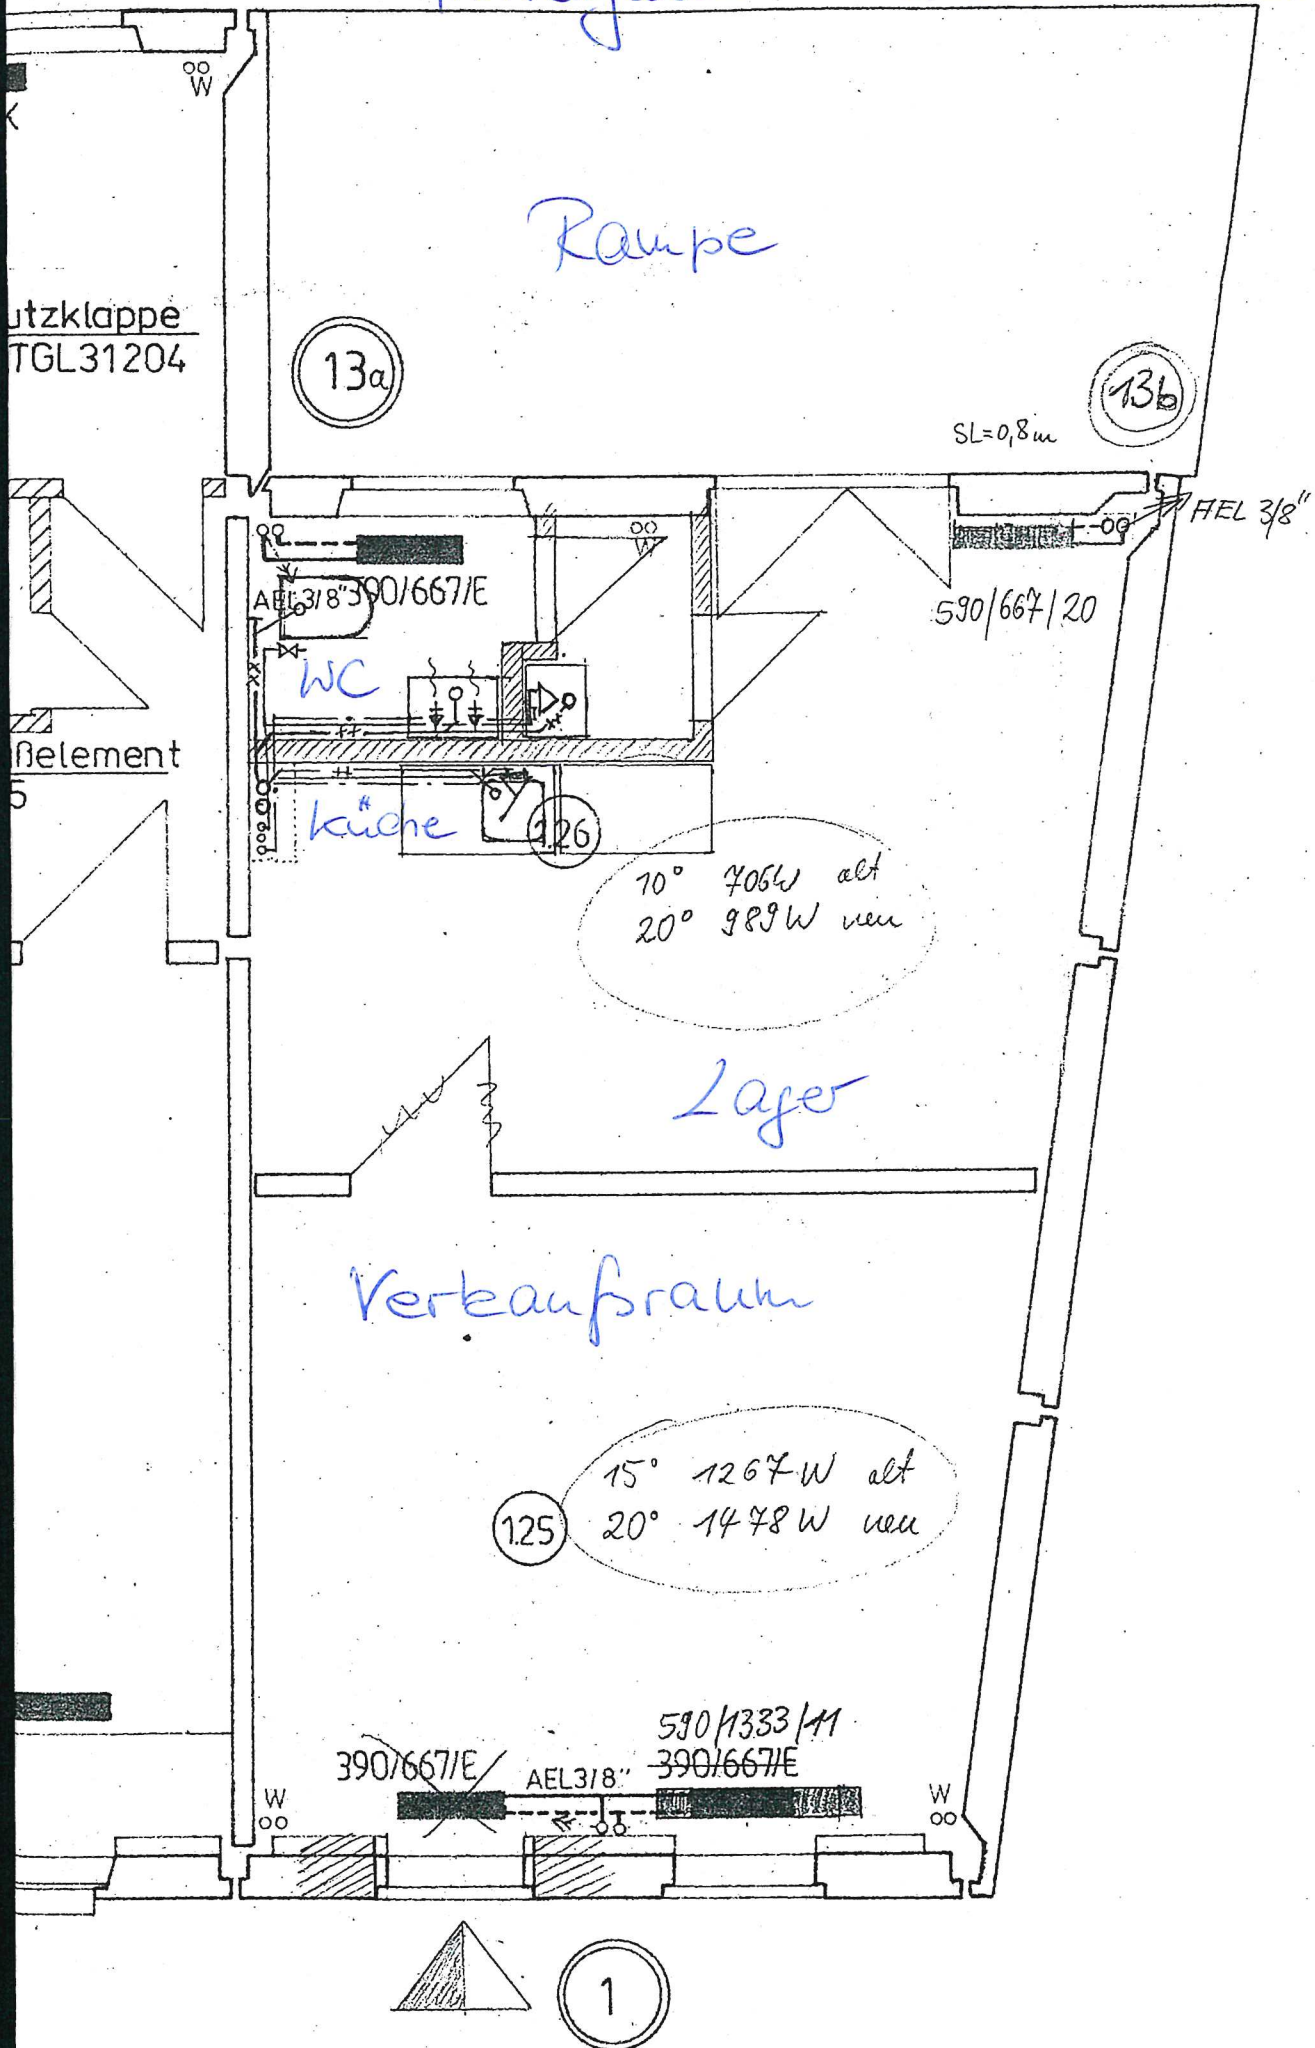 W
Rampe
utzklappe
TGL31204
13a
13b
SL=0,8m
AEL 3/8"
W
AEL3/8"
390/667/E
590/667/20
WC
ßelement
5
Küche
1.26
10° 706W alt
20° 989W neu
Lager
Verkaufsraum
15° 1267W alt
20° 1478W neu
1.25
590/1333/11
390/667/E
390/667/E
AEL3/8"
W
W
1